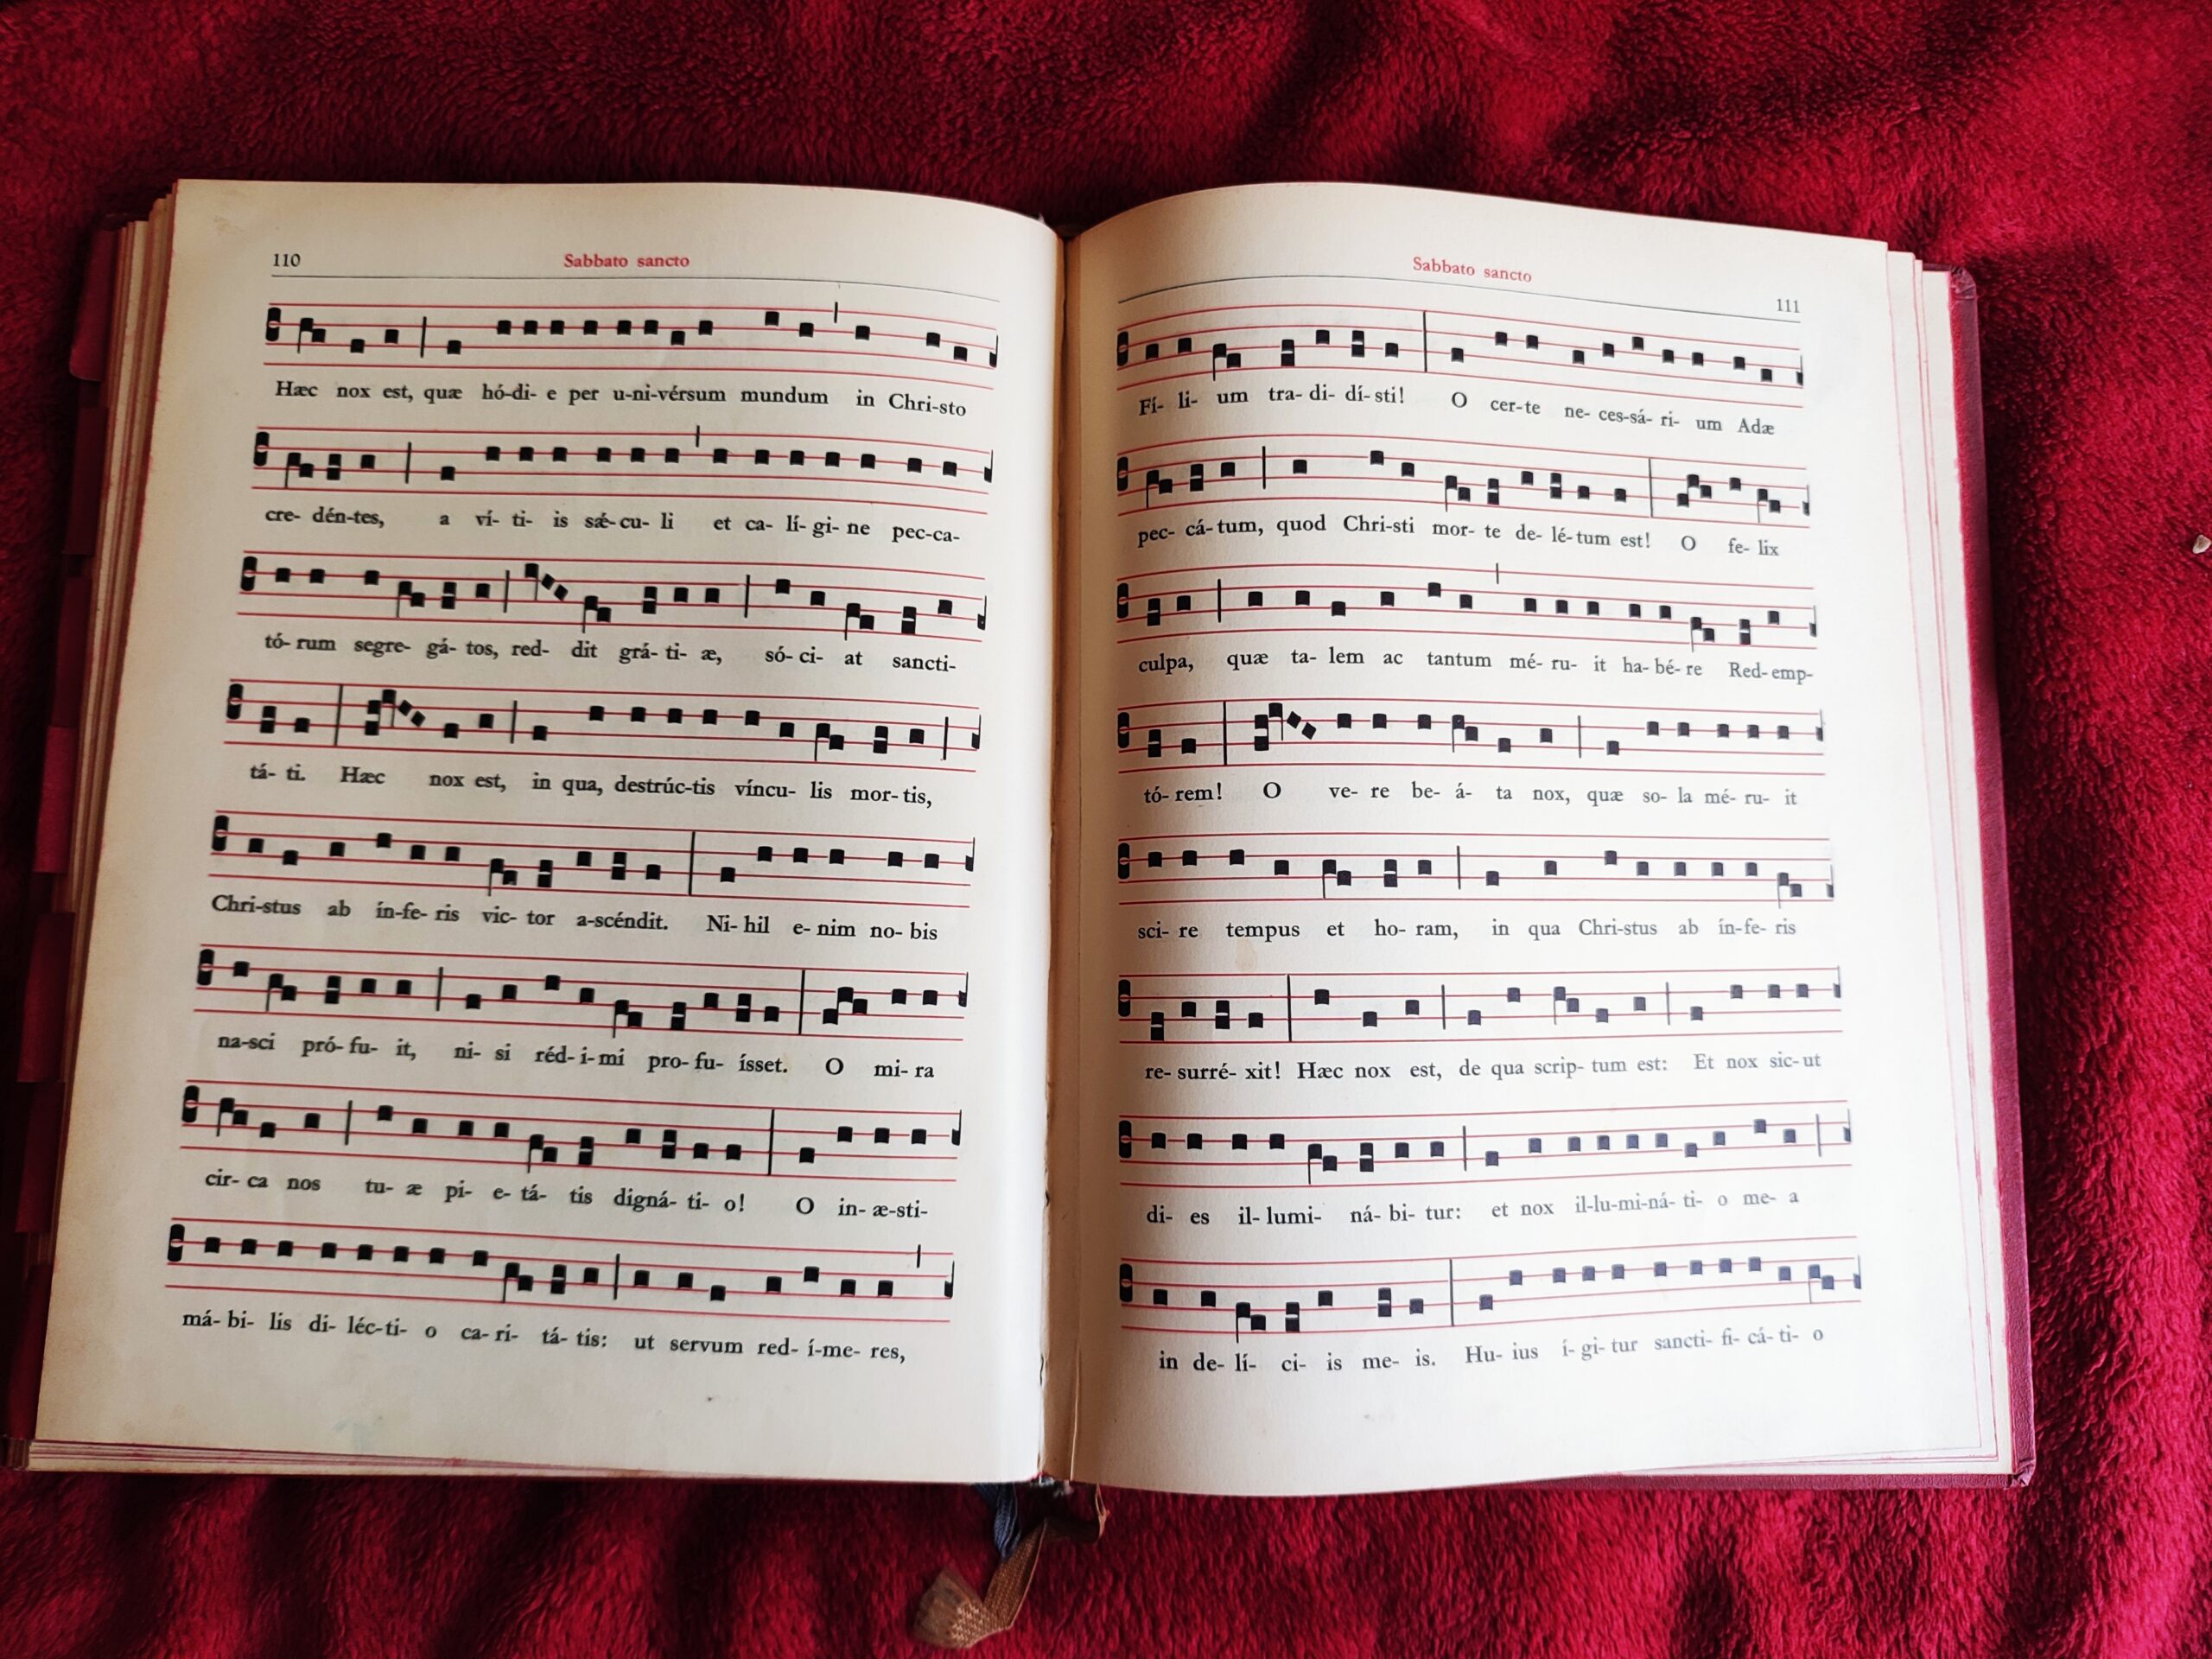 110
Sabbato sancto
Hæc nox est, quæ hó-di- e per u-ni-vérsum mundum in Chri-sto
cre- dén-tes, a ví- ti- is sǽ-cu- li et ca- lí- gi- ne pec-ca-
tó- rum segre- gá- tos, red- dit grá- ti- æ, só- ci- at sancti-
tá- ti. Hæc nox est, in qua, destrúc-tis víncu- lis mor- tis,
Chri-stus ab ín-fe- ris vic- tor a-scéndit. Ni- hil e- nim no- bis
na-sci pró- fu- it, ni- si réd- i-mi pro- fu- ísset. O mi- ra
cir- ca nos tu- æ pi- e- tá- tis digná- ti- o! O in- æ-sti-
má- bi- lis di- léc-ti- o ca- ri- tá- tis: ut servum red- í-me- res,
Sabbato sancto
111
Fí- li- um tra- di- dí- sti! O cer-te ne- ces-sá- ri- um Adæ
pec- cá- tum, quod Chri-sti mor- te de- lé- tum est! O fe- lix
culpa, quæ ta- lem ac tantum mé- ru- it ha- bé- re Red- emp-
tó- rem! O ve- re be- á- ta nox, quæ so- la mé- ru- it
sci- re tempus et ho- ram, in qua Chri-stus ab ín-fe- ris
re- surré- xit! Hæc nox est, de qua scrip- tum est: Et nox sic- ut
di- es il- lumi- ná- bi- tur: et nox il-lu-mi-ná- ti- o me- a
in de- lí- ci- is me- is. Hu- ius í- gi- tur sancti- fi- cá- ti- o